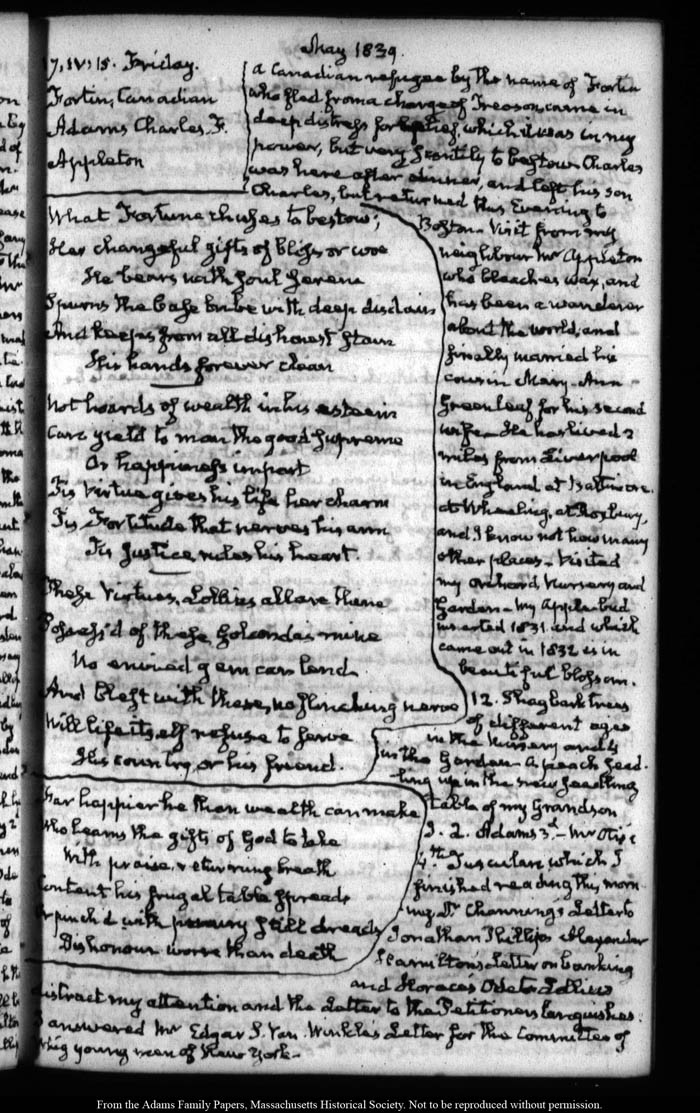 May 1839.
7. IV: 15. Friday.
Fortin, Canadian
Adams Charles. F.
Appleton
a Canadian refugee by the name of Fortin
who fled from a charge of Treason, came in
deep distress for relief, which it was in my
power, but very scantily to bestow. Charles
was here after dinner, and left his son
Charles, but returned this Evening to
Boston. Visit from my
neighbour Mr Appleton
who bleaches wax, and
has been a wanderer
about the world, and
finally married his
cousin Mary-Ann
Greenleaf for his second
wife. He has lived 2
miles from Liverpool
in England at Baltimore.
at Wheeling, at Roxbury,
and I know not how many
other places. Visited
my orchard, Nursery and
Garden. My Apple bud
inserted 1831 and which
came out in 1832 is in
beautiful blossom.
12. Shagbark trees
of different ages
in the Nursery and 4
in the Garden. A peach seed-
-ling up in the new seedling
table of my Grandson
J. Q. Adams 3d. Mr Otis's
4th Tusculan which I
finished reading this morn-
-ing Dr Channing's Letter to
Jonathan Phillips Alexander
Hamilton's Letter on banking
and Horace's Ode to Lollius
distract my attention and the Letter to the Petitioners languishes.
I answered Mr Edgar S. Van. Winkle's Letter for the Committee of
Whig young men of New York.
What Fortune chuses to bestow;
Her changeful gifts of bliss or woe
He bears with soul serene
Spurns the base bribe with deep disdain
And keeps from all dishonest stain
His hands forever clean
Not hoards of wealth in his esteem
Can yield to man the good supreme
Or happiness impart
Tis Virtue gives his life her charm
Tis Fortitude that nerves his arm
Tis Justice rules his heart.
These Virtues, Lollius all are thine
Possess'd of these Golconda's mine
No envied gem can lend.
And blest with these, no flinching nerve
Will life itself refuse to serve
His country, or his friend.
Far happier he than wealth can make
Who learns the gifts of God to take
With praise returning breath
Content his frugal table spreads
Or pinch'd with penury still dreads
Dishonour worse than death
From the Adams Family Papers, Massachusetts Historical Society. Not to be reproduced without permission.